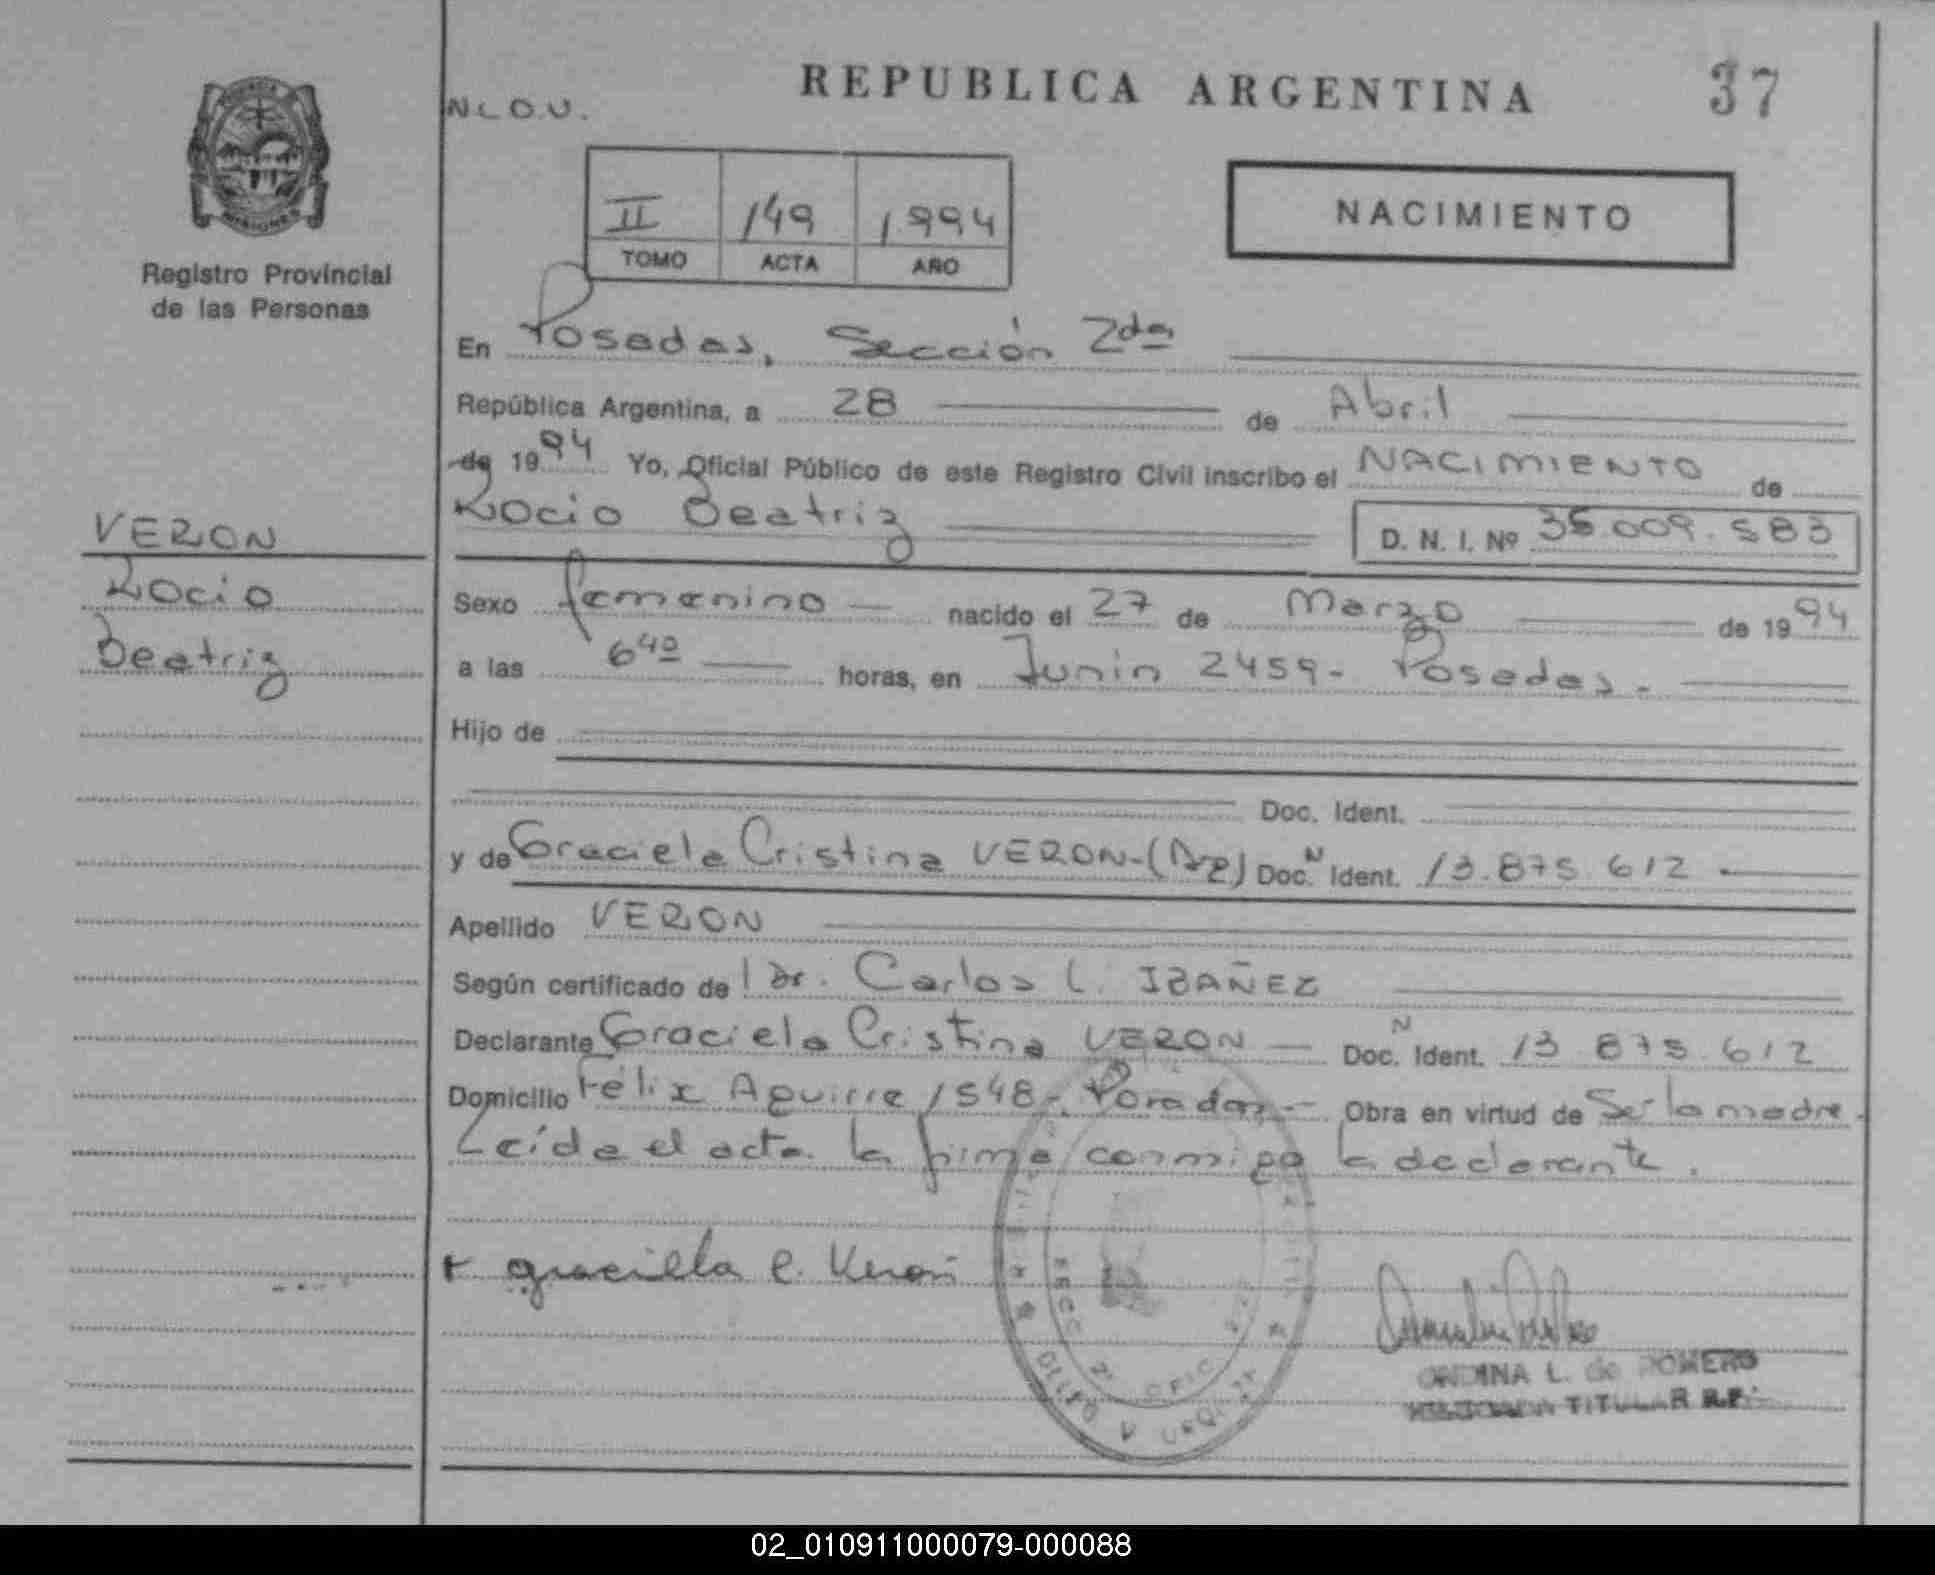 REPUBLICA ARGENTINA
37
N.L.O.U.
II 149 1994
TOMO ACTA AÑO
NACIMIENTO
Registro Provincial
de las Personas
En Posadas, Sección 2da
República Argentina, a 28 de Abril
de 1994 Yo, Oficial Público de este Registro Civil inscribo el NACIMIENTO de
Rocio Beatriz D. N. I. Nº 35.009.583
VERON
Rocio
Beatriz
Sexo femenino nacido el 27 de Marzo de 1994
a las 6 40 horas, en Junin 2459 - Posadas.-
Hijo de
Doc. Ident.
y de Graciela Cristina VERON - (Ar) Doc. N Ident. 13.875.612
Apellido VERON
Según certificado de l Dr. Carlos L. IBAÑEZ
Declarante Graciela Cristina VERON - Doc. N Ident. 13 875.612
Domicilio Félix Aguirre 1548 - Posadas - Obra en virtud de Ser la madre.
Leída el acta la firma conmigo la declarante.
graciela C. Veron
SECC 2 OFIC
URQUIZA
ONDINA L. de ROMERO
TITULAR R.P.
02_010911000079-000088